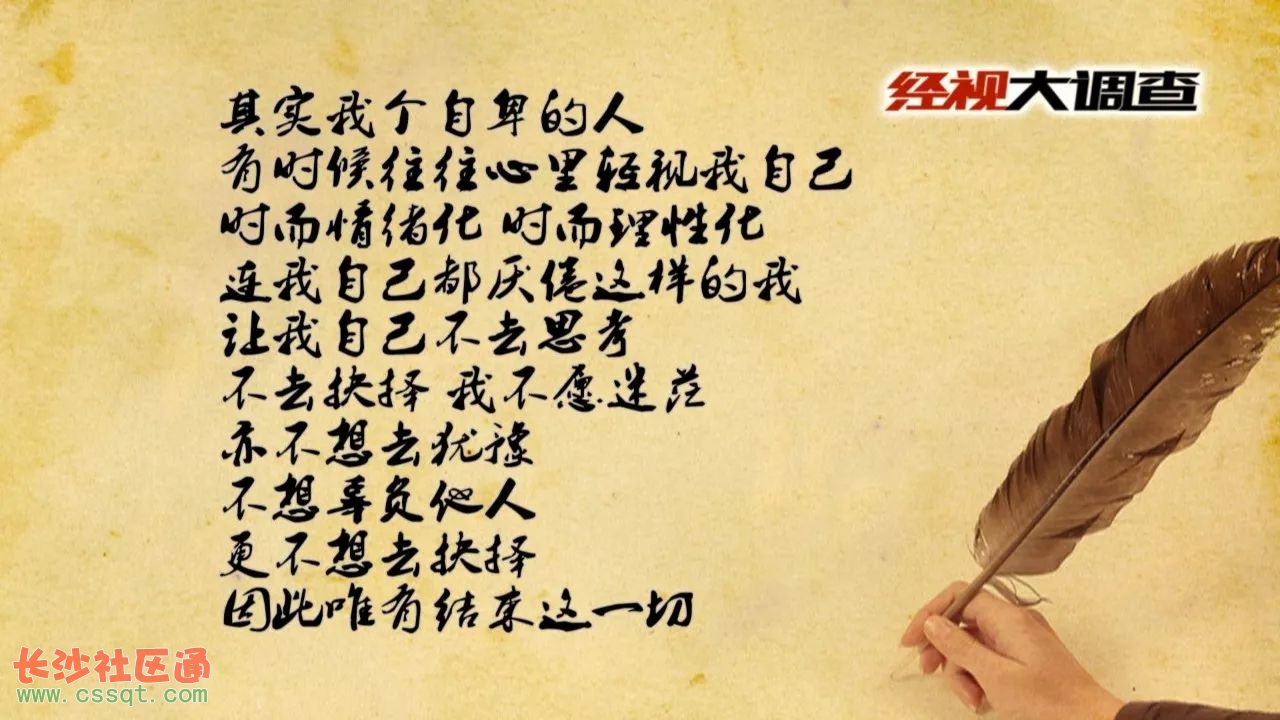 经视大调查
其实我个自卑的人
有时候往往心里轻视我自己
时而情绪化 时而理性化
连我自己都厌倦这样的我
让我自己不去思考
不去抉择 我不愿迷茫
亦不想去犹豫
不想辜负他人
更不想去抉择
因此唯有结束这一切
长沙社区通
www.cssqt.com